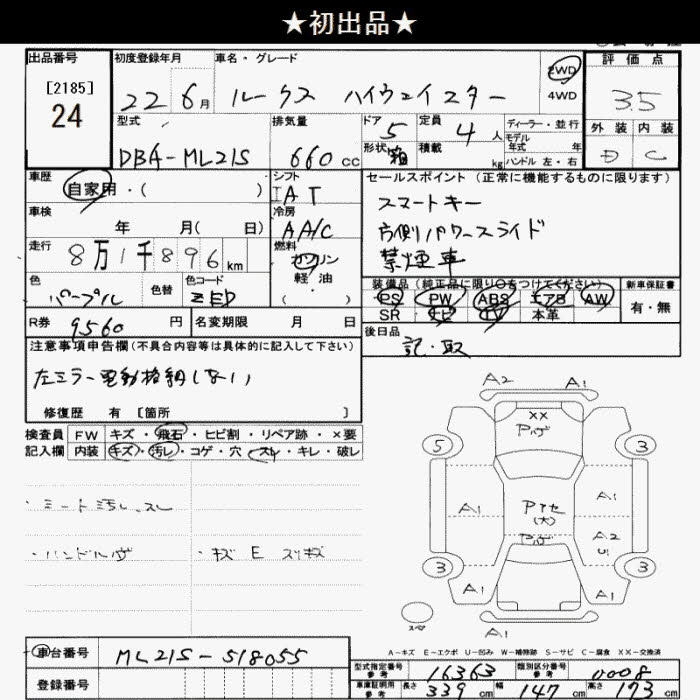 ★初出品★
出品番号 初度登録年月 車名・グレード 評価点
[2185]
24
22 6月 ルークス ハイウェイスター
2WD
4WD
3.5
型式 排気量 ドア 定員 ディーラー・並行
DBA-ML21S 660cc 5 4人
モデル年式 年
形状 箱 積載 kg ハンドル 左・右
外装 内装
D C
車歴 シフト セールスポイント(正常に機能するものに限ります)
自家用・( ) IAT
スマートキー
車検 年 月( 日) 冷房 AA/C
片側パワースライド
走行 8万1千896km 燃料 ガソリン
軽油
( )
禁煙車
色 色替 色コード
パープル ZED
装備品(純正品に限り○をつけてください) 新車保証書
PS PW ABS エアB AW 有・無
SR ナビ TV 本革
R券 9560円 名変期限 月 日
後日品
記・取
注意事項申告欄(不具合内容等は具体的に記入して下さい)
左ミラー電動格納しない
修復歴 有 [箇所 ]
検査員 FW キズ・飛石・ヒビ割・リペア跡・×要
記入欄 内装 キズ・汚レ・コゲ・穴・スレ・キレ・破レ
・シート汚レ、スレ
・ハンドル
・キズ E スリキズ
A2 A1
××
5 3
A1 A1
(大)
A2
U1
3 3
A1 A1
A1
スペア
A-キズ E-エクボ U-凹み W-補修跡 S-サビ C-腐食 XX-交換済
車台番号 ML21S-518055
登録番号
型式指定番号 参考 16363 類別区分番号 参考 0008
車庫証明用 参考 長さ 339cm 幅 147cm 高さ 173cm